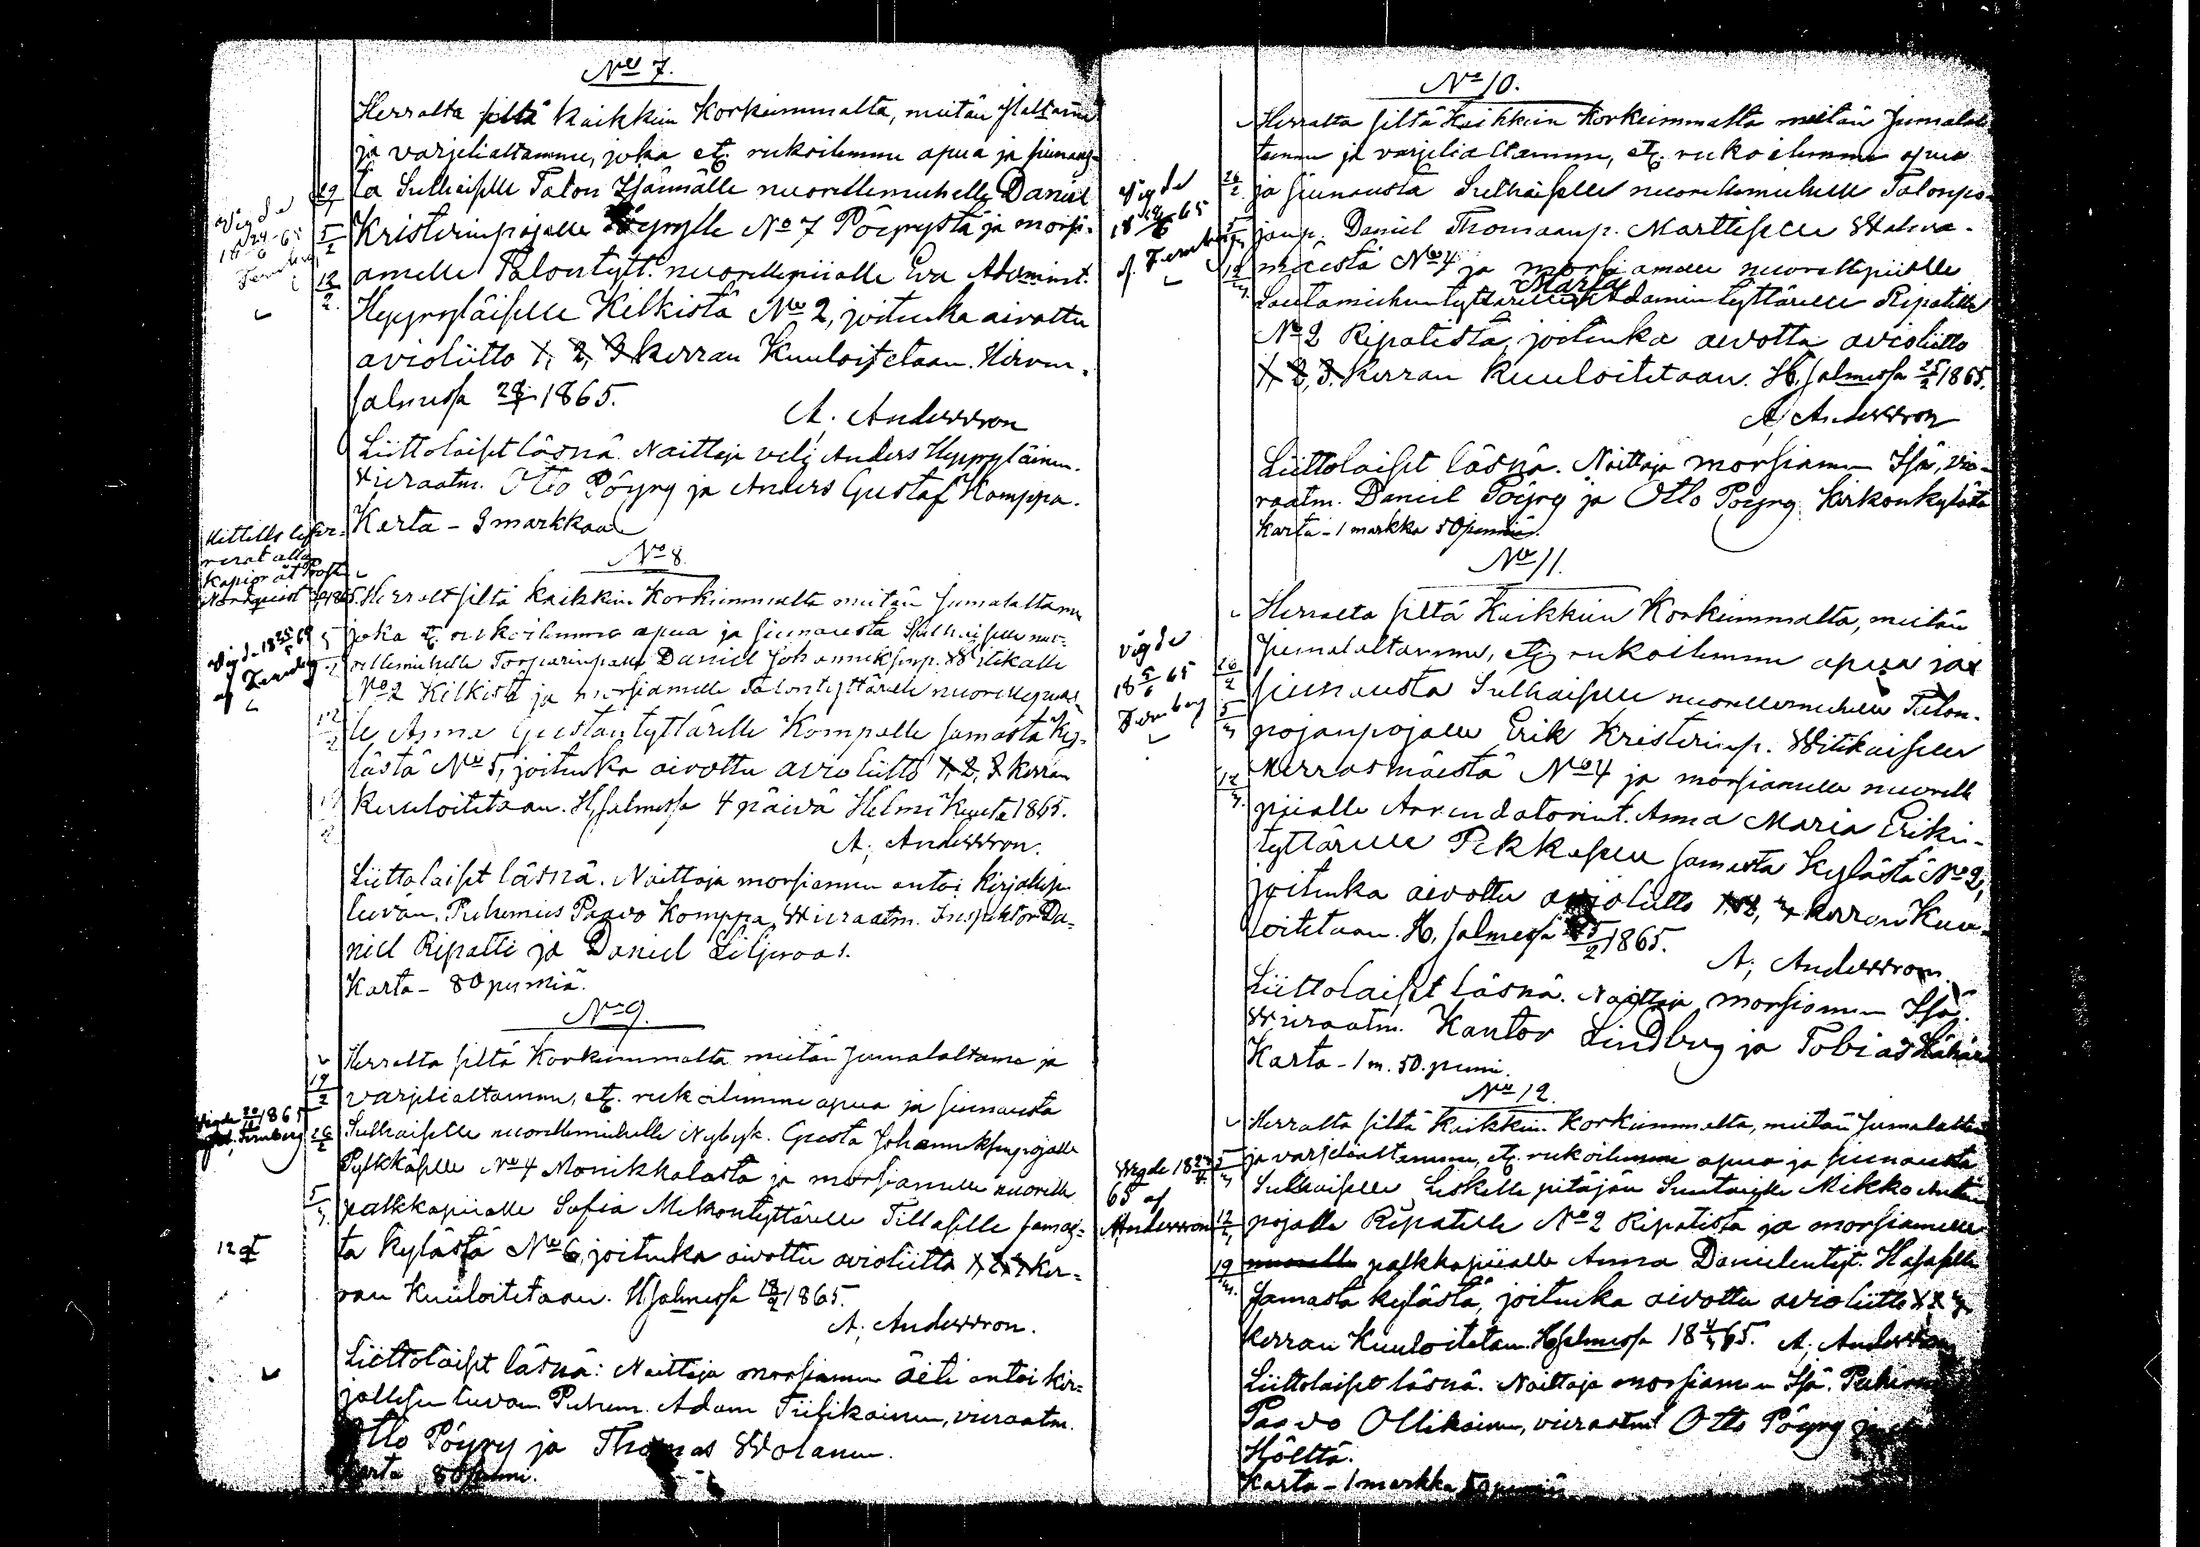 No 7.
Herralta siltä kaikkein Korkeimmalta, meitän
ja varjeliattamme, joka etc. rukoilemme apua ja siunaus-
ta Sulhaiselle Talon Isännälle nuorellemiehelle Daniel
Kristerinpojalle Pöyrylle No 7 Pöyrystä ja morsi-
amelle Talontytt. nuorellepiialle Eva Adamint.
Hyyryläiselle Kilkistä No 2, joitenka aivottu
avioliitto 1, 2, 3 kerran Kuuloitetaan. Hirven-
salmessa 28/1 1865.
A. Andersson
Liittolaiset läsnä. Naittaja veli Anders Hyyryläinen.
Vieraatm. Otto Pöyry ja Anders Gustaf Komppa.
Karta - 3 markkaa
Vigde
Fernberg
29/1
5/2
12/2
No 8.
Herralt siltä kaikkein Korkeimmalta meitän Jumalaltame
joka etc. rukoilemme apua ja siunausta Sulhaiselle nuo-
rellemiehelle Torparinpoja Daniel Johanneksenp. Witikalle
No 2 Kilkistä ja morsiamelle Talontyttärelle nuorellepiial-
le Anna Gustavtyttärelle Kompalle samasta Ky-
lästä No 5, joitenka aivottu avioliitto 1, 2, 3 kerran
Kuuloitetaan. H.salmessa 4 päivä Helmi Kuuta 1865.
A. Andersson.
Liittolaiset läsnä. Naittaja morsiamen antoi Kirjallisen
luvan. Puhemies Paavo Komppa, Wieraatm. Inspektor Da-
niel Ripatti ja Daniel Liljeroos.
Karta - 80 penniä.
No 9.
Herralta siltä Korkeimmalta meitän Jumalaltame ja
varjeliattamme, etc. rukoilemme apua ja siunausta
Sulhaiselle nuorellemiehelle Nybygk. Gusta Johanneksenpojalle
Pylkkäselle No 4 Monikkalasta ja morsiamelle nuorelle
palkkapiialle Sofia Mikontyttärelle Tillaselle samas-
ta kylästä No 6, joitenka aivottu avioliitto 1, 2, 3 ker-
ran Kuuloitetaan. H.salmessa 18/2 1865.
A. Andersson.
Liittolaiset läsnä: Naittaja morsiamen äiti antoi kir-
jallisen luvan. Puhem. Adam Tiilikainen, vieraatm.
Otto Pöyry ja Thomas Wolanen.
Karta 80 penni.
19/2
26/2
5/3
No 10.
Herralta siltä Kaikkein Korkeimmalta meitän Jumalal-
tamme ja varjeliattamme, etc. rukoilemme apua
ja siunausta Sulhaiselle nuorellemiehelle Talonpo-
janp. Daniel Thomaanp. Marttiselle Wahva-
mäestä No 4 ja morsiamelle nuorellepiialle
Maria
Lautamiehentyttärelle Adamintyttärelle Ripatille
No 2 Ripatista, joitenka aivottu avioliitto
1, 2, 3. Kerran Kuuloitetaan. H.salmessa 25/2 1865.
A. Andersson
Liittolaiset läsnä. Naittaja morsiamen Isä, vie-
raatm. Daniel Pöyry ja Otto Pöyry Kirkonkylästä
Karta - 1 markka 50 penniä.
Vigde
26/2
No 11.
Herralta siltä Kaikkein Korkeimmalta, meitän
Jumalaltamme, etc. rukoilemme apua ja
siunausta Sulhaiselle nuorellemiehelle Talon-
pojanpojalle Erik Kristerinp. Witikaiselle
No 4 ja morsiamelle nuorelle
piialle Arrendatorint. Anna Maria Erikin-
tyttärelle Pekkaselle samasta Kylästä No 2,
joitenka aivottu avioliitto 1, 2, 3 kerran Kuu-
loitetaan. H.salmessa 25/2 1865.
A. Andersson.
Liittolaiset läsnä. Naittaja morsiamen Isä.
Wieraatm. Kantor Lindberg ja Tobias
Karta - 1 m. 50. penni.
vigde
18 5/6 65
Fernberg
26/2
5/3
12/3.
No 12.
Herralta siltä Kaikkein Korkeimmalta, meitän
ja varjeliattamme, etc. rukoilemme apua ja siunausta
Sulhaiselle Leskelle pitäjän Suutarille Mikko
pojalle Ripatille No 2 Ripatista ja morsiamelle
nuorelle palkkapiialle Anna Danielintyt.
samasta kylästä, joitenka aivottu avioliitto 1 2 3
kerran Kuuloitetan. H.salmessa 18 4/3 65. A. Andersson
Liittolaiset läsnä. Naittaja morsiamen Isä.
Paavo Ollikainen, vieraatm. Otto Pöyry
Höltta.
Karta - 1 markka 50 penniä
65 af
Andersson
5/3
12/3
19/3.